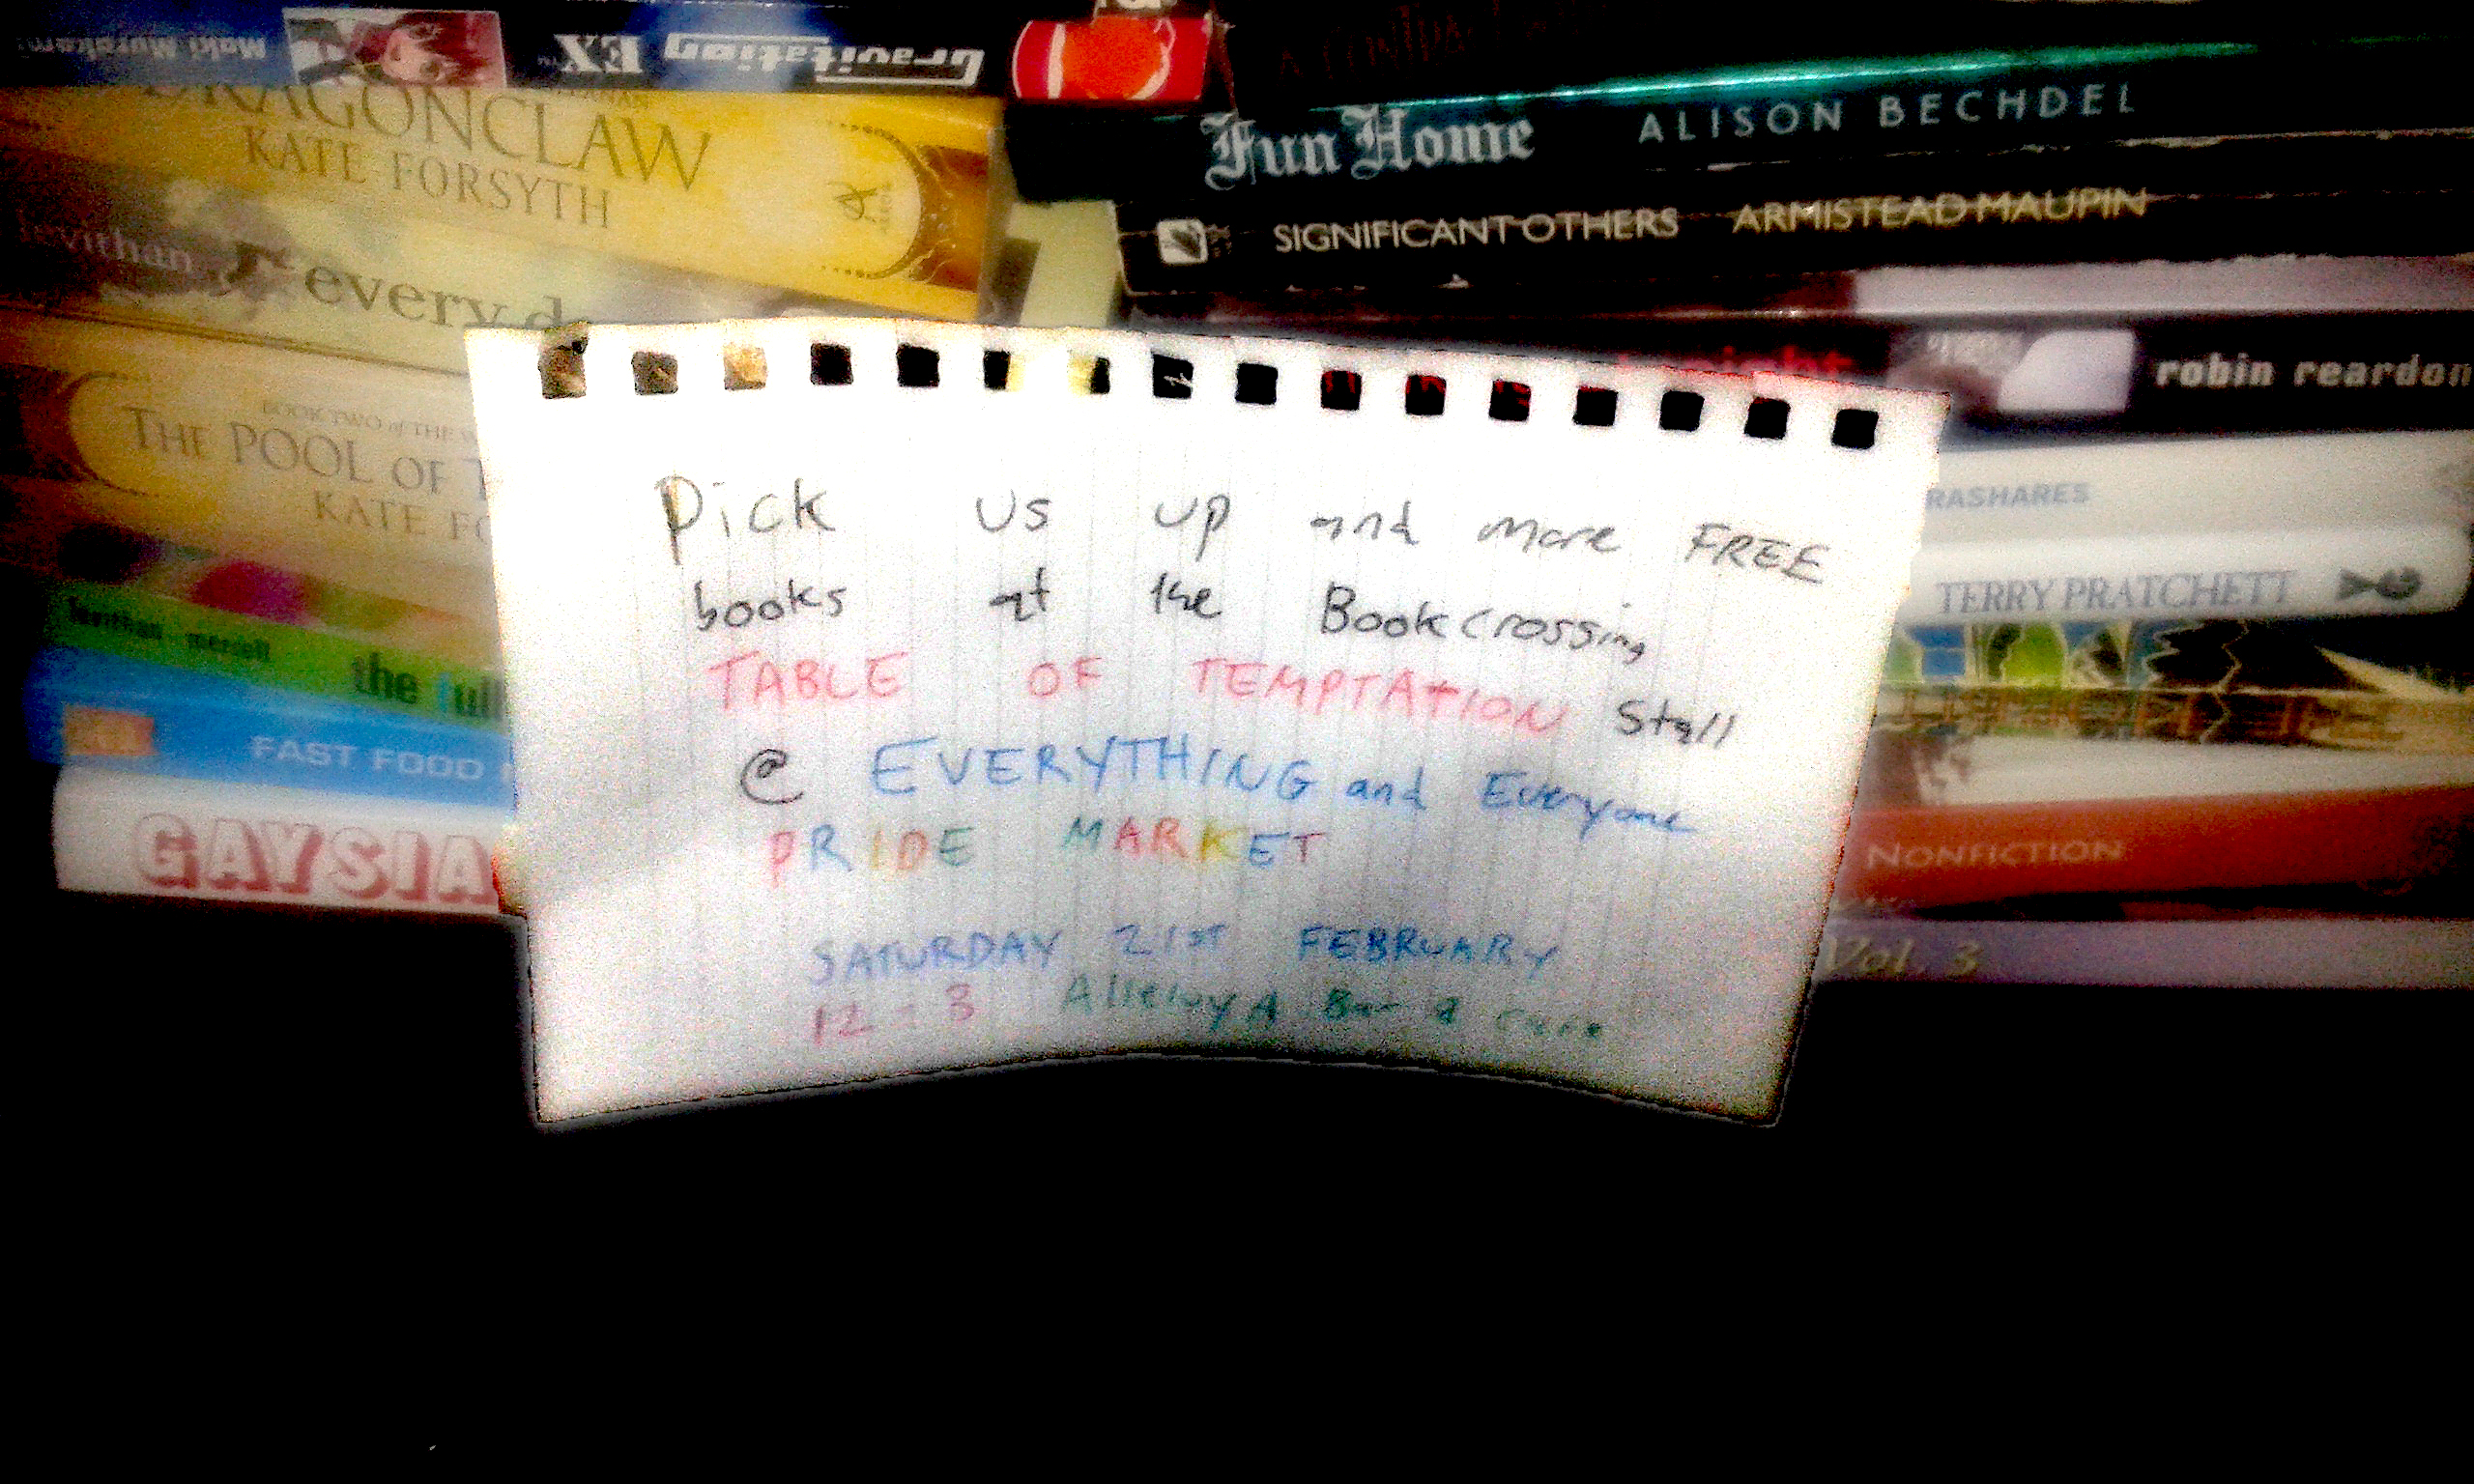 Maki Murakami EX Gravitation
DRAGONCLAW
KATE FORSYTH
levithan every d
BOOK TWO of THE
THE POOL OF
KATE FO
levithan merrell the full
FAST FOOD
GAYSIA
Fun Home ALISON BECHDEL
SIGNIFICANT OTHERS ARMISTEAD MAUPIN
robin reardon
RASHARES
TERRY PRATCHETT
NONFICTION
Vol. 3
Pick us up and more FREE
books at the Bookcrossing
TABLE OF TEMPTATION Stall
@ EVERYTHING and Everyone
PRIDE MARKET
SATURDAY 21ST FEBRUARY
12 - 3 AlleluyA Bar &